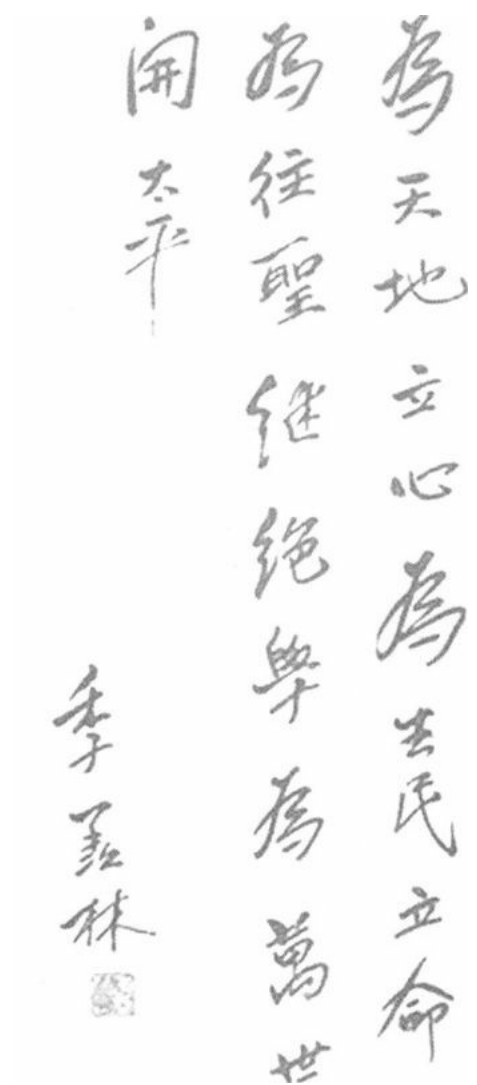 為天地立心為生民立命
為往聖继绝學為萬世
開太平
季羡林